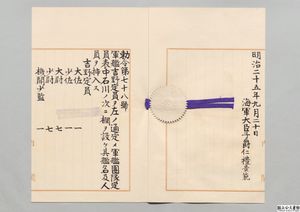 明治二十五年九月二十日
海軍大臣子爵仁禮景範
勅令第七十八號
軍艦吉野定員ヲ左ノ通定メ軍艦團隊定
員表中石川ノ次ニ欄ヲ設ケ其艦名及人
員ヲ挿入ス
吉野定員
大佐 一
少佐 一
大尉 七
少尉 七
機關少監 一